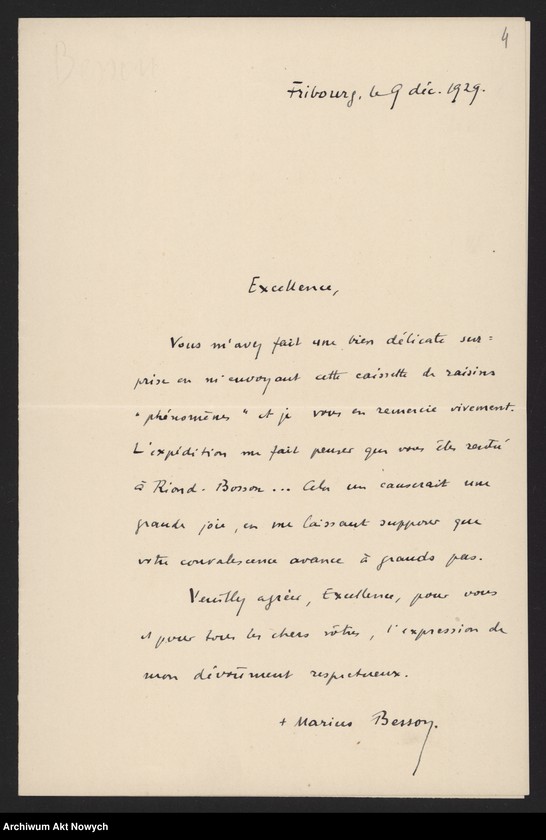 4
Besson
Fribourg, le 9 déc. 1929.
Excellence,
Vous m'avez fait une bien délicate sur=
prise en m'envoyant cette caissette de raisins
"phénomènes" et je vous en remercie vivement.
L'expédition me fait penser que vous êtes rentré
à Riond-Bosson... Cela me causerait une
grande joie, en me laissant supposer que
votre convalescence avance à grands pas.
Veuillez agréer, Excellence, pour vous
et pour tous les chers vôtres, l'expression de
mon dévoûment respectueux.
+ Marius Besson.
Archiwum Akt Nowych